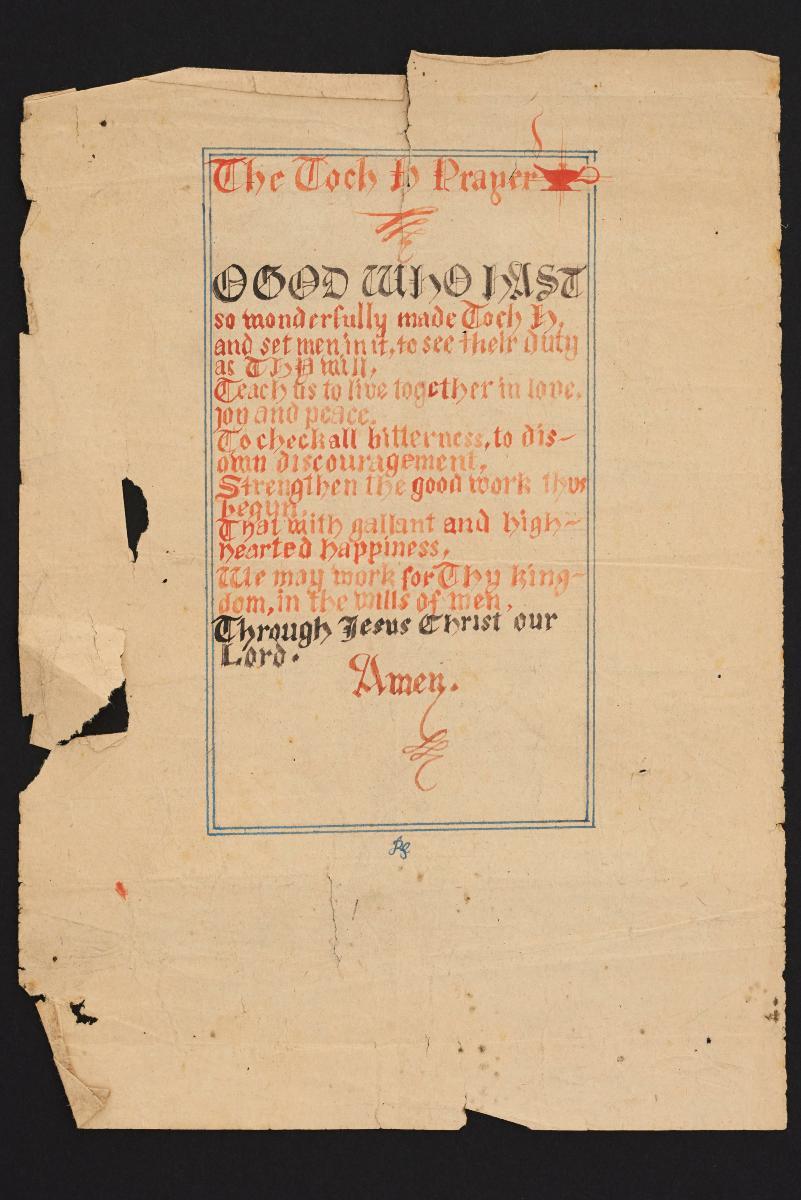 The Toch H Prayer
O GOD WHO HAST
so wonderfully made Toch H,
and set men in it, to see their duty
as THY will,
Teach us to live together in love,
joy and peace.
To check all bitterness, to dis-
own discouragement,
Strengthen the good work thus
begun,
That with gallant and high-
hearted happiness,
We may work for Thy king-
dom, in the wills of men,
Through Jesus Christ our
Lord.
Amen.